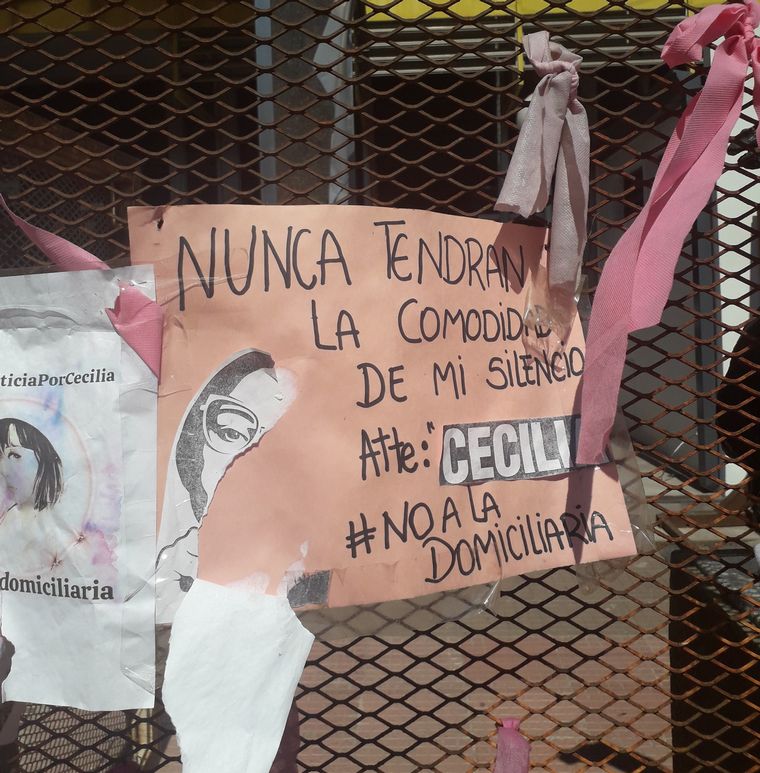 NUNCA TENDRAN
LA COMODIDAD
DE MI SILENCIO
Atte:"CECILIA
#NO A LA
DOMICILIARIA
ticiaPorCecilia
domiciliaria